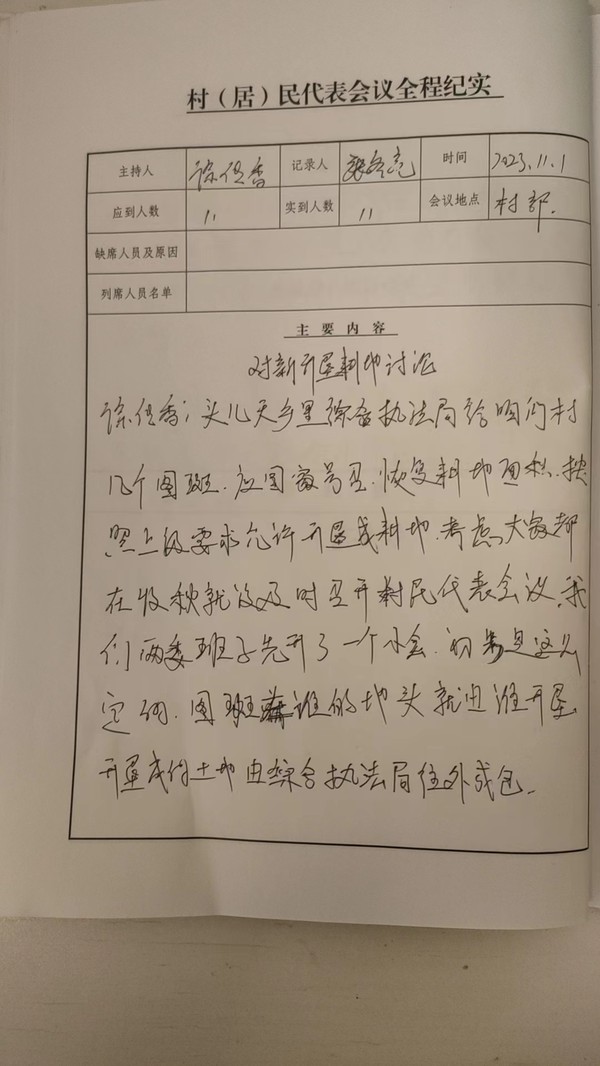 村（居）民代表会议全程纪实
主持人 徐佰香 记录人 时间 2023.11.1
应到人数 11 实到人数 11 会议地点 村部.
缺席人员及原因
列席人员名单
主要内容
对新开垦耕地讨论
徐佰香：头几天乡里综合执法局给咱们村
几个图斑.应国家号召.恢复耕地面积.按
照上级要求允许开垦成耕地.考虑大家都
在收秋就没及时召开村民代表会议.我
们两委班子先开了一个小会.初步是这么
定的.图斑靠谁的地头就由谁开垦
开垦成的土地由综合执法局往外成包.